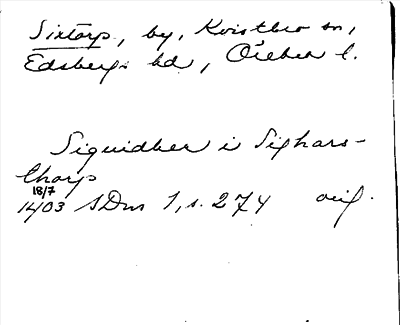 Sixtorp, by, Kvistbro sn,
Edsbergs hd, Örebro l.
Siguidher i Sighars-
thorp
18/7
1403 SDns 1, s. 274 orig.